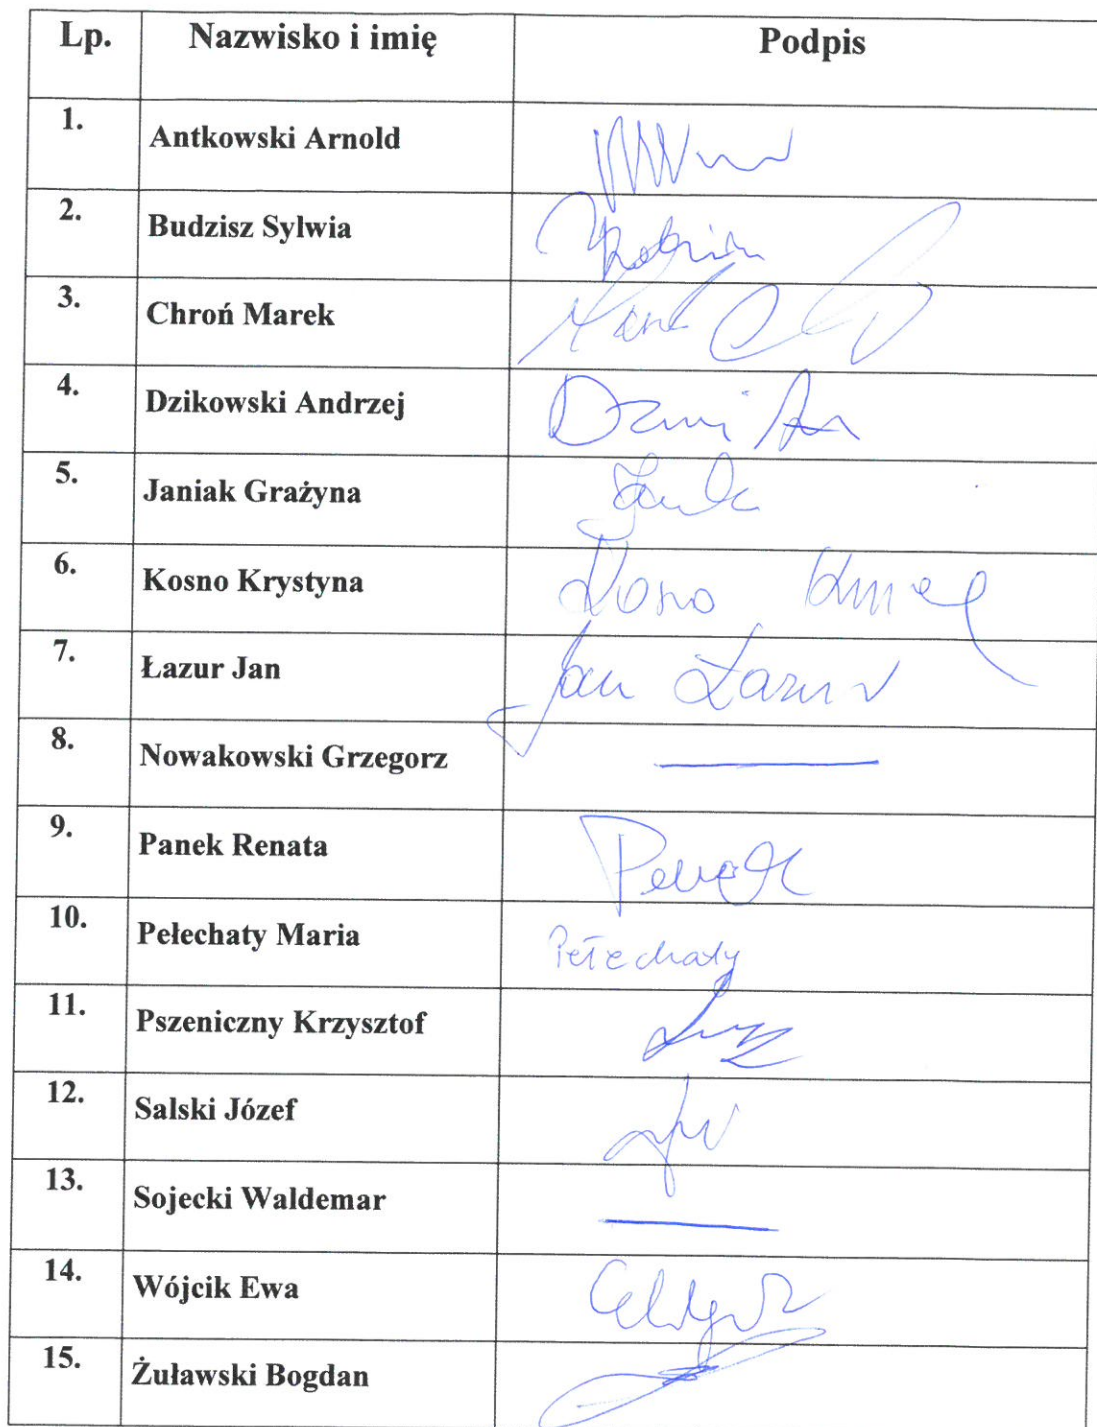 Lp. Nazwisko i imię Podpis
1. Antkowski Arnold
2. Budzisz Sylwia
3. Chroń Marek
4. Dzikowski Andrzej
5. Janiak Grażyna
6. Kosno Krystyna
7. Łazur Jan Jan Łazur
8. Nowakowski Grzegorz
9. Panek Renata Panek
10. Pełechaty Maria Pełechaty
11. Pszeniczny Krzysztof
12. Salski Józef
13. Sojecki Waldemar
14. Wójcik Ewa
15. Żuławski Bogdan